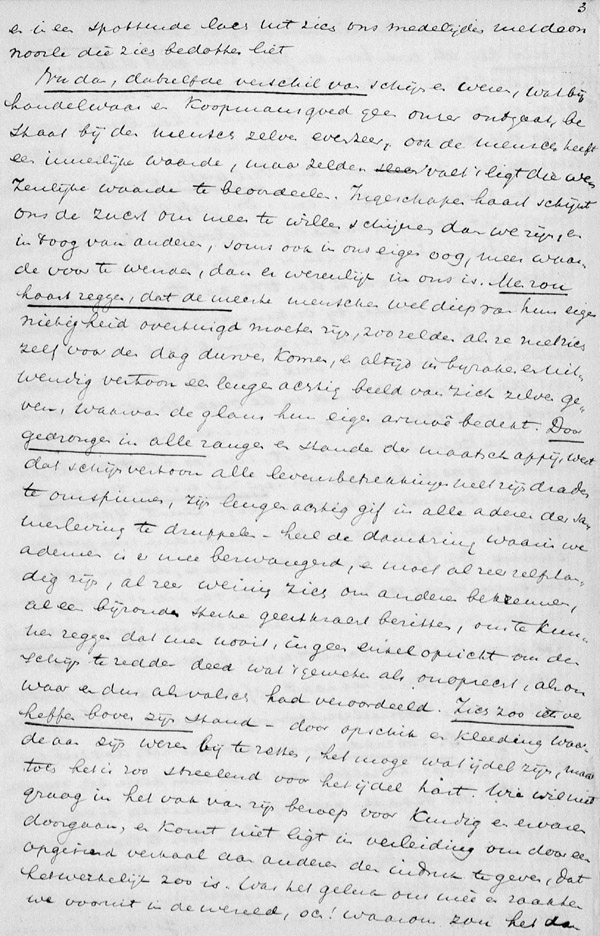 3
en is een spottende lach uit zich ons medelijden met den
noorle die zich bedotten liet
Nu dan, datzelfde verschil van schijn en wezen, wat bij
handelwaar en koopmansgoed geen onzer ontgaat, be
staat bij den mensch zelven evenzeer, ook de mensch heeft
een innerlijke waarde, maar zelden valt 't ligt die we
zenlijke waarde te beoordeelen. Ingeschapen haast schijnt
ons de zucht om meer te willen schijnen dan we zijn, en
in 't oog van anderen, soms ook in ons eigen oog, meer waar
de voor te wenden, dan er wezenlijk in ons is. Men zou
haast zeggen, dat de meeste menschen wel diep van hun eigen
nietigheid overtuigd moeten zijn, zoo zelden als ze met zich
zelf voor den dag durven komen, en altijd in bijzaken en uit-
wendig vertoon een leugenachtig beeld van zich zelven ge-
ven, waarvan de glans hun eigen armoê bedekt. Door
gedrongen in alle rangen en standen der maatschappij, weet
dat schijnvertoon alle levensbetrekkingen met zijn draden
te omspinnen, zijn leugenachtig gif in alle aderen der sa
menleving te druppelen - heel de dampkring waarin we
ademen is er mee bezwangerd, en moet al zeer zelfstan-
dig zijn, al zeer weinig zich om anderen bekreunen,
al een bijzonder sterke geestkracht bezitten, om te kun-
nen zeggen dat men nooit, in geen enkel opzicht om den
schijn te redden deed wat 't geweten als onoprecht, als on
waar en dus als valsch had veroordeeld. Zich zoo iets ve
heffen boven zijn stand - door opschik en kleeding waar-
de aan zijn wezen bij te zetten, het moge wat ijdel zijn, maar
toch het is zoo streelend voor het ijdel hart. Wie wil niet
graag in het vak van zijn beroep voor kundig en ervaren
doorgaan, en komt niet ligt in verleiding om door een
opgesierd verhaal aan anderen den indruk te geven, dat
het werkelijk zoo is. Was het geluk ons mêe en raakten
we vooruit in de wereld, och! waarom zou het dan